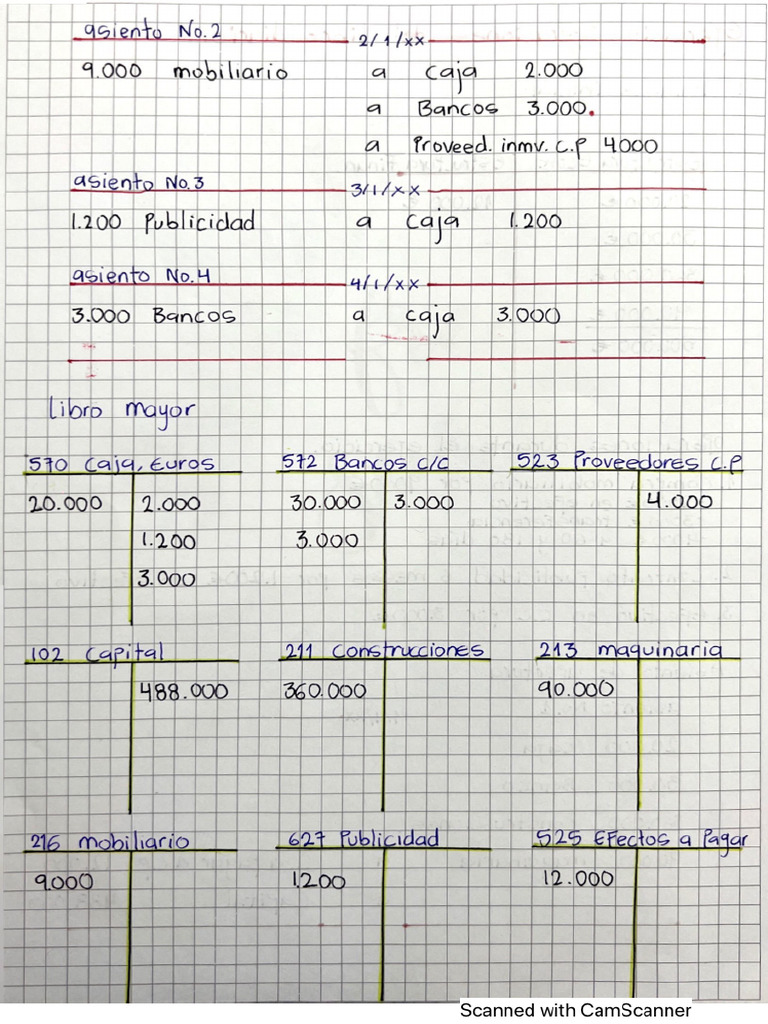 asiento No.2
2/1/xx
9.000 mobiliario a caja 2.000
a Bancos 3.000.
a Proveed. inmv. c.p 4000
asiento No.3
3/1/xx
1.200 Publicidad a caja 1.200
asiento No.4
4/1/xx
3.000 Bancos a caja 3.000
Libro mayor
570 Caja, Euros 572 Bancos c/c 523 Proveedores c.p
20.000 2.000 30.000 3.000 4.000
1.200 3.000
3.000
102 Capital 211 Construcciones 213 maquinaria
488.000 360.000 90.000
216 mobiliario 627 Publicidad 525 Efectos a Pagar
9.000 1.200 12.000
Scanned with CamScanner